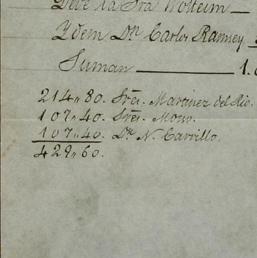 Debe la Sra Wolheim
Ydem Dn Carlos Ranney
Suman 1.0
214"80. Sres. Martinez del Rio.
107"40. Sres. Mouv.
107"40. Dn N. Carrillo.
429"60.